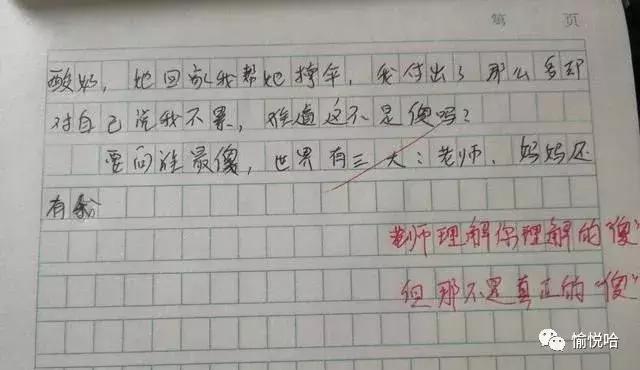 第 页
酸奶,她回家我帮她撑伞,我付出了那么多却
对自己说我不累,难道这不是傻吗?
要问谁最傻,世界有三大:老师、妈妈还
有
老师理解你理解的“傻”
但那不是真正的“傻”
愉悦哈